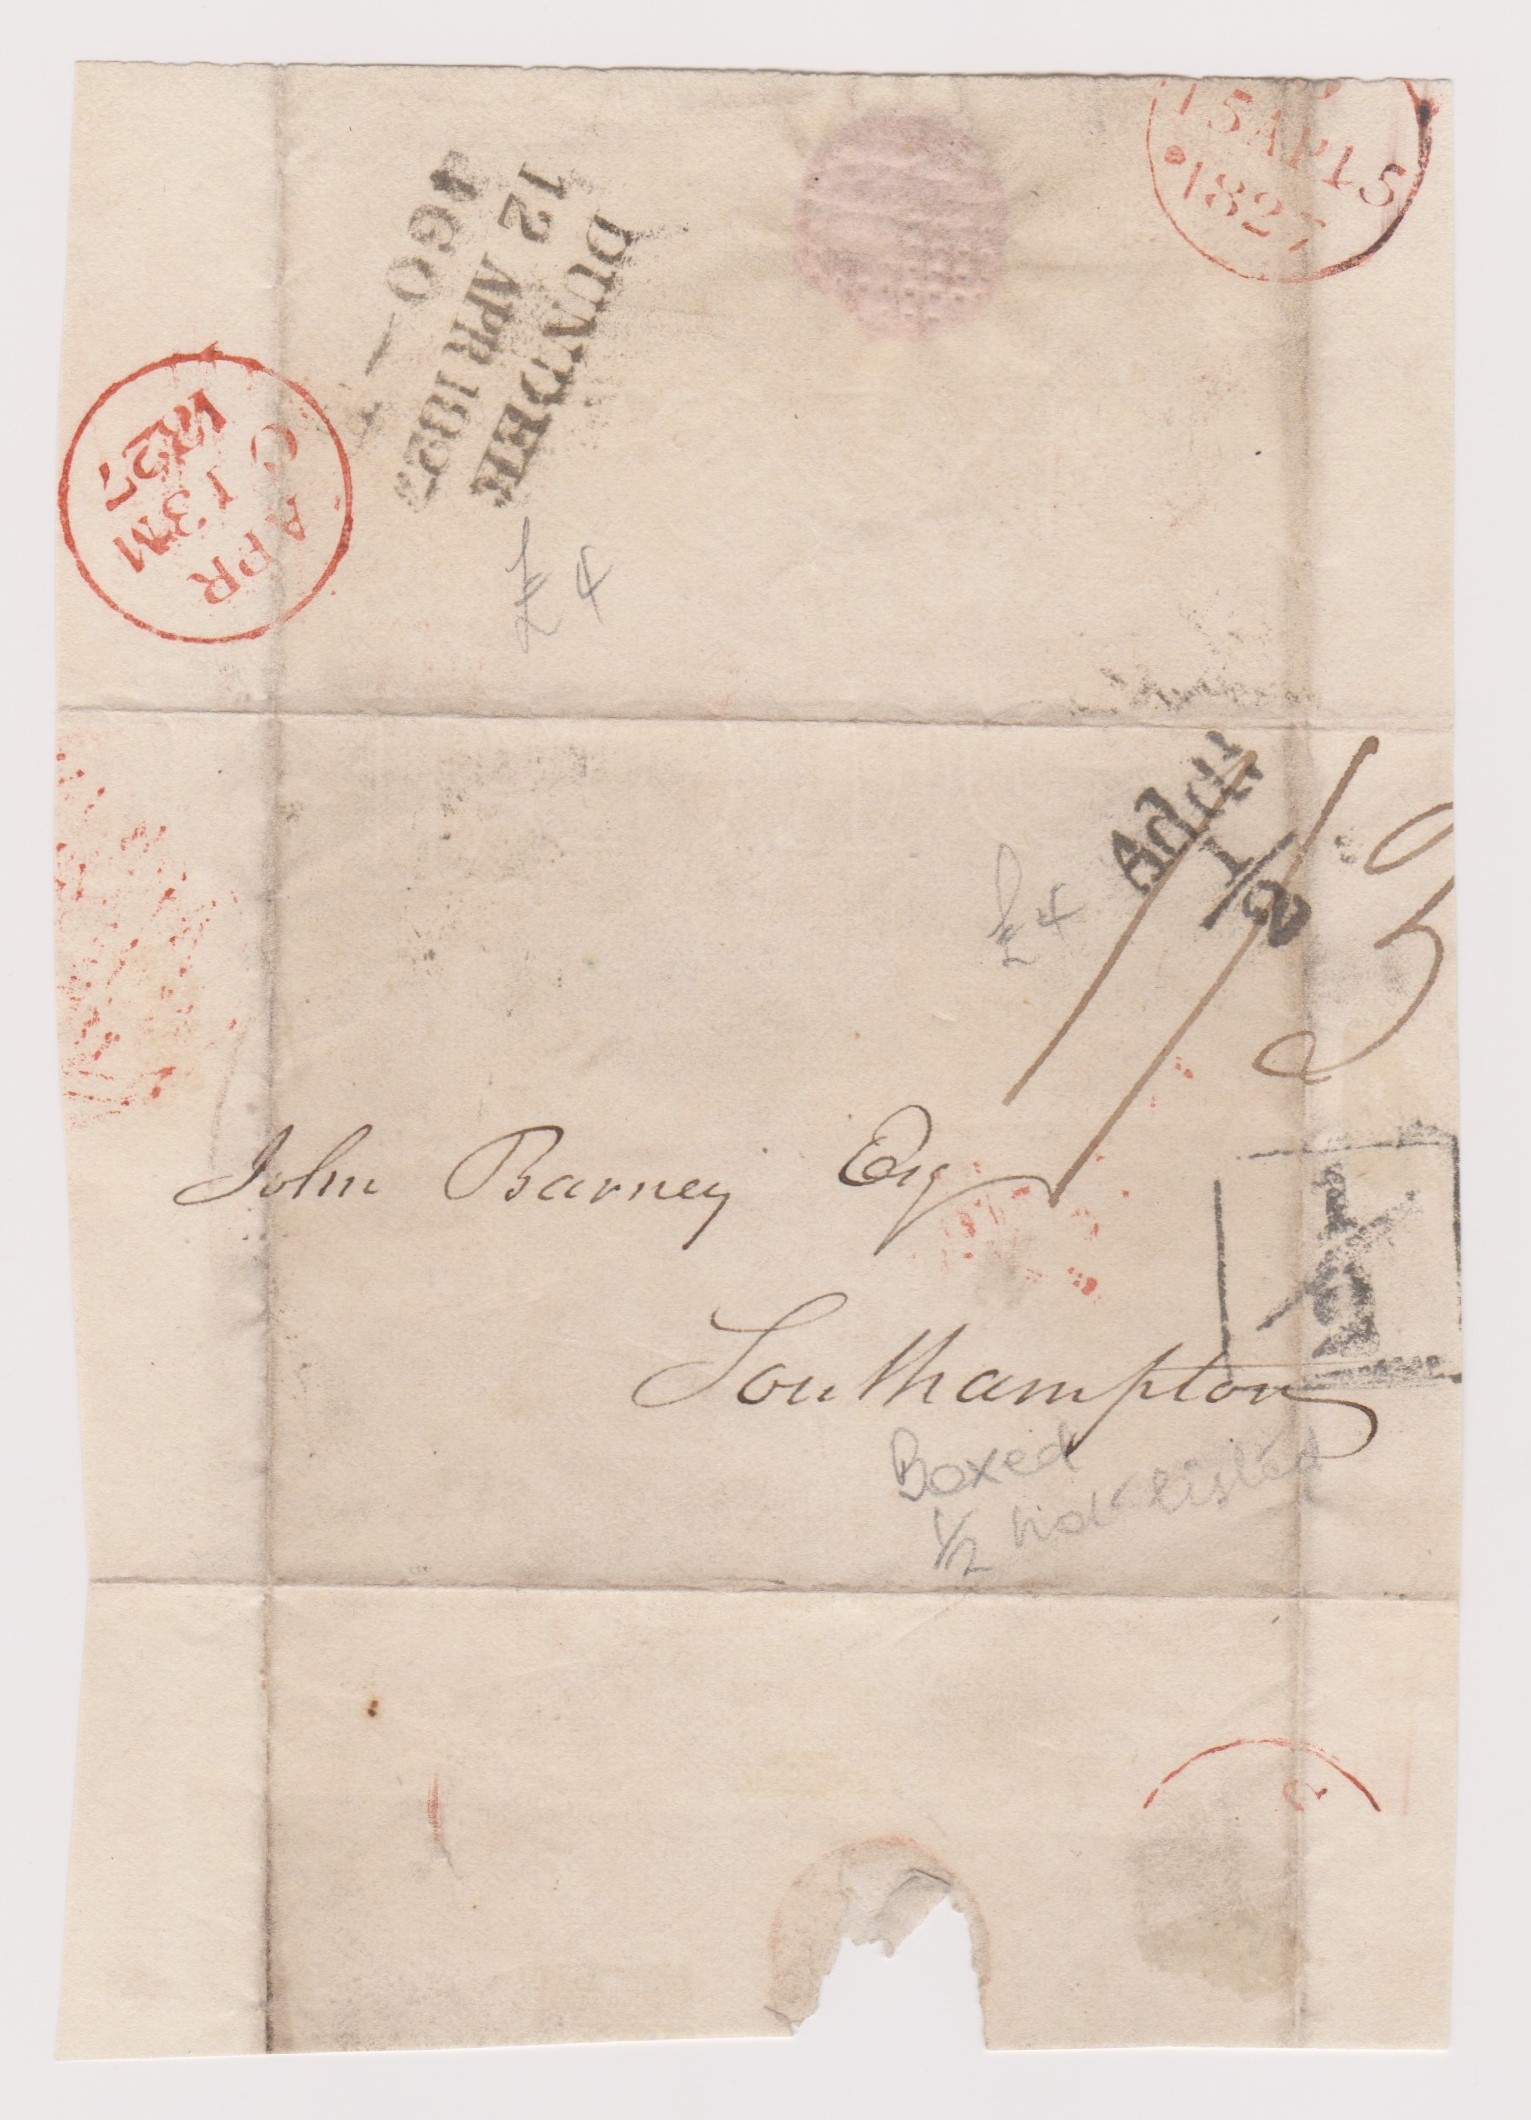 15 AP 15
1827
DUNDEE
12 APR 1827
460
C
APR
13 M
1827
£4
Addl
1/2
£4
1/3
John Barney Esq
1/2
Southampton
Boxed
1/2 not listed